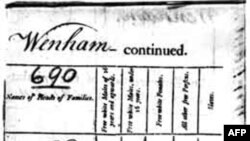 Wenham – continued.
690
Names of Heads of Families.
Free white Males of 16
years and upwards.
Free white Males, under
16 years.
Free white Females.
All other free Persons.
Slaves.
AFP